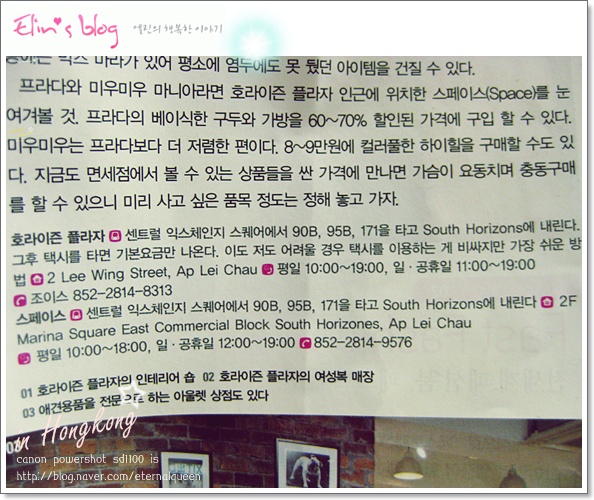 Elin's blog 엘린의 행복한 이야기
막스 마라가 있어 평소에 엄두에도 못 뒀던 아이템을 건질 수 있다.
프라다와 미우미우 마니아라면 호라이즌 플라자 인근에 위치한 스페이스(Space)를 눈
여겨볼 것. 프라다의 베이식한 구두와 가방을 60~70% 할인된 가격에 구입 할 수 있다.
미우미우는 프라다보다 더 저렴한 편이다. 8~9만원에 컬러풀한 하이힐을 구매할 수도 있
다. 지금도 면세점에서 볼 수 있는 상품들을 싼 가격에 만나면 가슴이 요동치며 충동구매
를 할 수 있으니 미리 사고 싶은 품목 정도는 정해 놓고 가자.
호라이즌 플라자 센트럴 익스체인지 스퀘어에서 90B, 95B, 171을 타고 South Horizons에 내린다.
그후 택시를 타면 기본요금만 나온다. 이도 저도 어려울 경우 택시를 이용하는 게 비싸지만 가장 쉬운 방
법 2 Lee Wing Street, Ap Lei Chau 평일 10:00~19:00, 일·공휴일 11:00~19:00
조이스 852-2814-8313
스페이스 센트럴 익스체인지 스퀘어에서 90B, 95B, 171을 타고 South Horizons에 내린다 2F
Marina Square East Commercial Block South Horizones, Ap Lei Chau
평일 10:00~18:00, 일·공휴일 12:00~19:00 852-2814-9576
01 호라이즌 플라자의 인테리어 숍 02 호라이즌 플라자의 여성복 매장
03 애견용품을 전문으로 하는 아울렛 상점도 있다
in Hongkong
canon powershot sd1100 is
http://blog.naver.com/eternalqueen